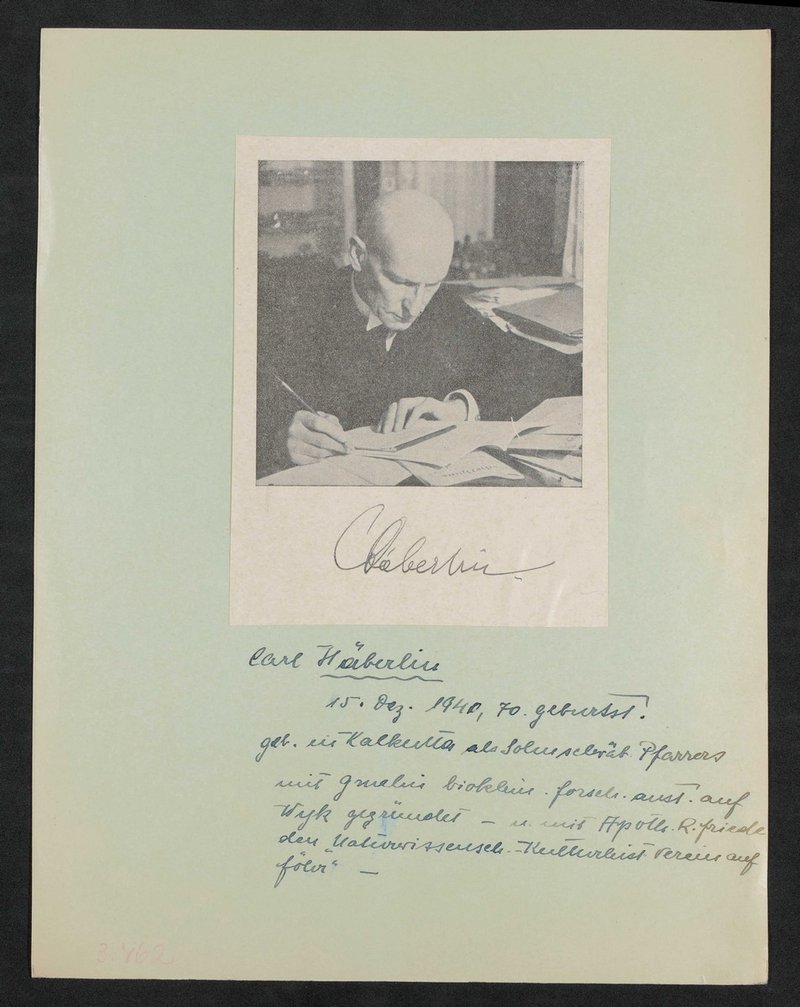 CHäberlin.
Carl Häberlin
15. Dez. 1940, 70. geburtst.
geb. in Kalkutta als Sohn schwäb. Pfarrers
mit Gmelin bioklim. forsch. anst. auf
Wyk gegründet – u. mit Apoth. R. friede
den "Naturwissensch.-Kulturhist. Verein auf
föhr" –